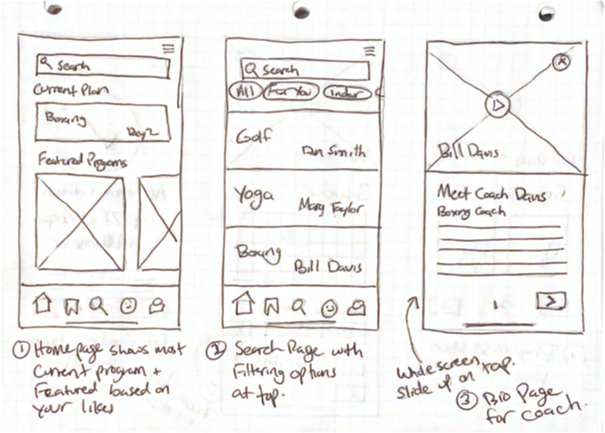 Search
Current Plan
Boxing
Day 2
Featured Programs
① Home page shows most
Current program +
Featured based on
your likes
Search
All
For You
Indoor
Golf
Dan Smith
Yoga
Mary Taylor
Boxing
Bill Davis
② Search Page with
Filtering options
at top.
Bill Davis
Meet Coach Davis
Boxing Coach
whole screen
slide up on tap.
③ Bio Page
for coach.